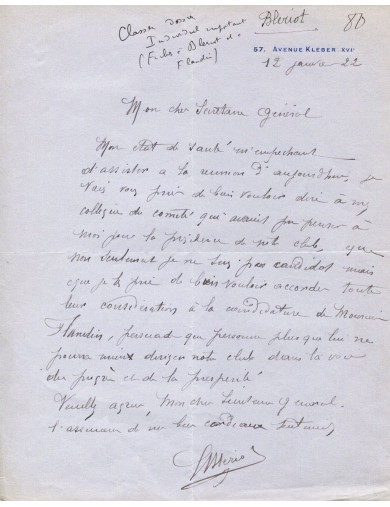 Classer dossier
Individuel important
(Fiches : Bleriot et
Flandin)
Bleriot
80
57, AVENUE KLEBER (XVIᵉ)
12 janvier 22
Mon cher Secrétaire Général
Mon état de santé m'empêchant
d'assister a la reunion d'aujourd'hui, je
vais vous prier de bien vouloir dire à mes
collègues du comité qui avaient pu penser à
moi pour la présidence de notre club, que
non seulement je ne suis pas candidat mais
que je les prie de bien vouloir accorder toute
leur considération à la candidature de Monsieur
Flandin, persuadé que personne plus que lui ne
pourra mieux diriger notre club dans la voie
du progrès et de la prosperité.
Veuillez agreer, Mon cher Secrétaire General
l'assurance de mes bien cordiaux sentiments
L Blériot